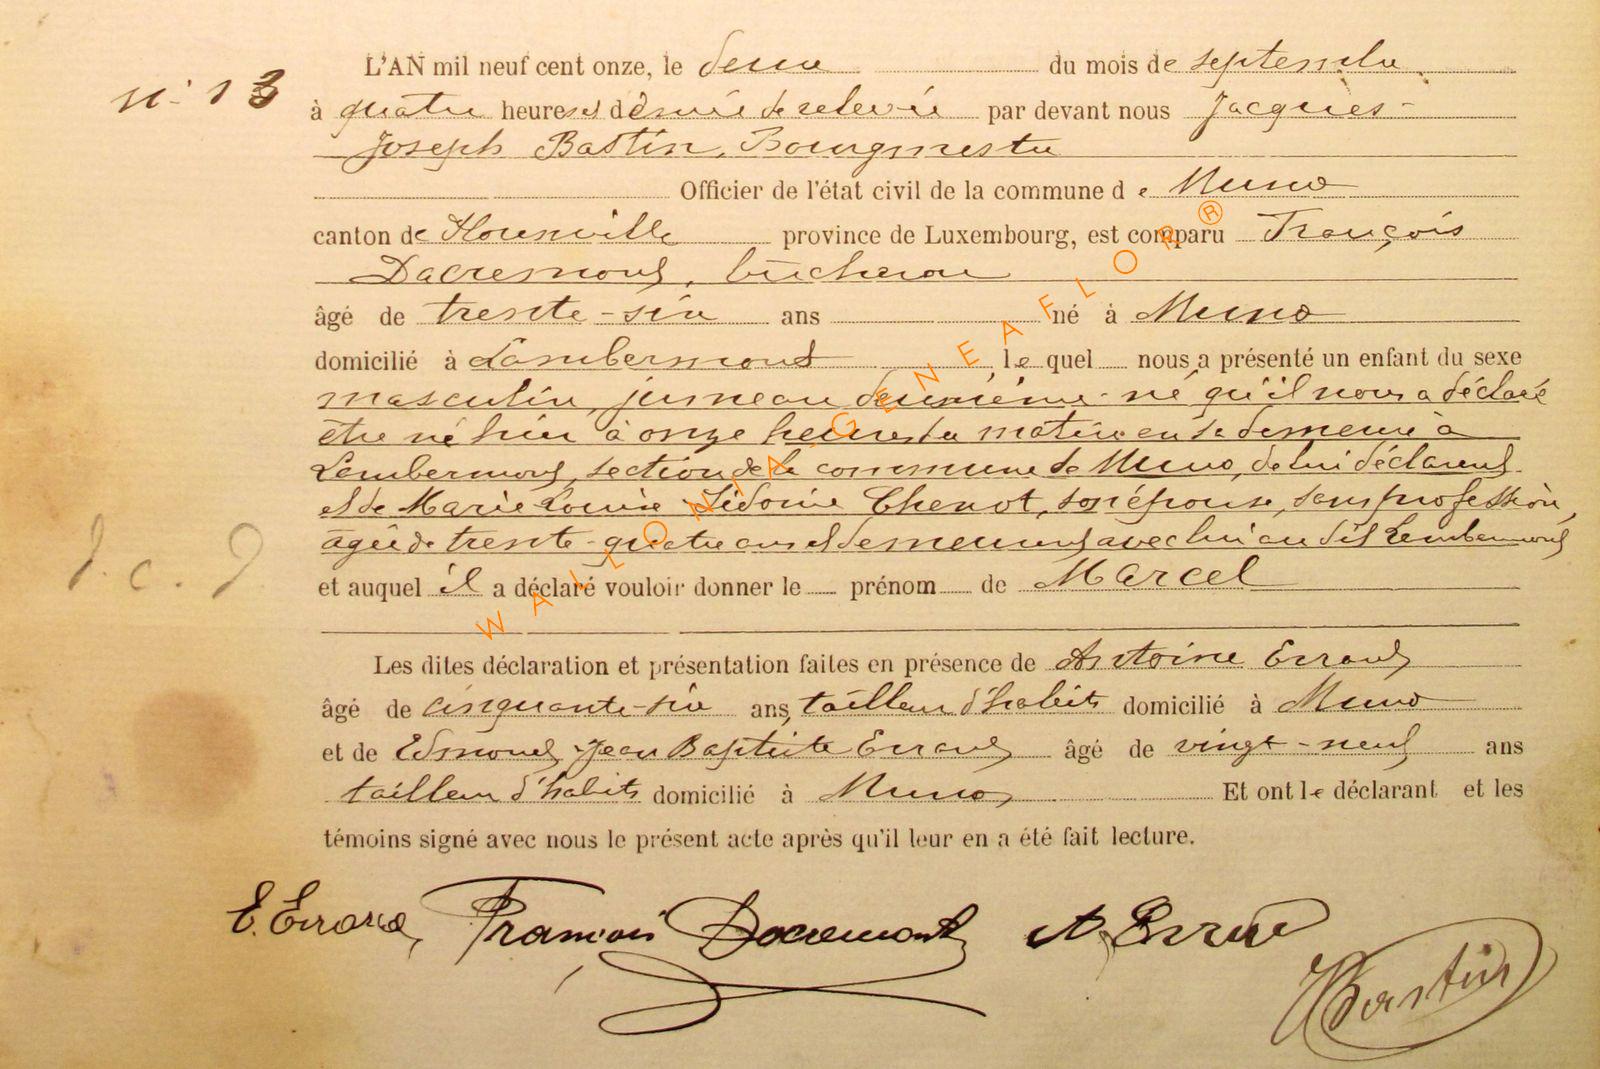 N° 13
L'AN mil neuf cent onze, le deux du mois de septembre
à quatre heures et demie de relevée par devant nous Jacques-
Joseph Bastin, Bourgmestre
Officier de l'état civil de la commune de Muno
canton de Florenville province de Luxembourg, est comparu François
Dacremont, bûcheron
âgé de trente-six ans né à Muno
domicilié à Lambermont, lequel nous a présenté un enfant du sexe
masculin, jumeau deuxième-né qu'il nous a déclaré
être né hier à onze heures du matin en sa demeure à
Lambermont, section de la commune de Muno, de lui déclarant
et de Marie Louise Sidonie Chenot, son épouse, sans profession,
âgée de trente-quatre ans et demeurant avec lui au dit Lambermont
et auquel il a déclaré vouloir donner le prénom de Marcel
Les dites déclaration et présentation faites en présence de Antoine Errard
âgé de cinquante-six ans, tailleur d'habits domicilié à Muno
et de Edmond Jean Baptiste Errard âgé de vingt-neuf ans
tailleur d'habits domicilié à Muno, Et ont le déclarant et les
témoins signé avec nous le présent acte après qu'il leur en a été fait lecture.
E. Errard, François Dacremont A. Errard
JBastin
WALLONIA-GENEAFLOR®